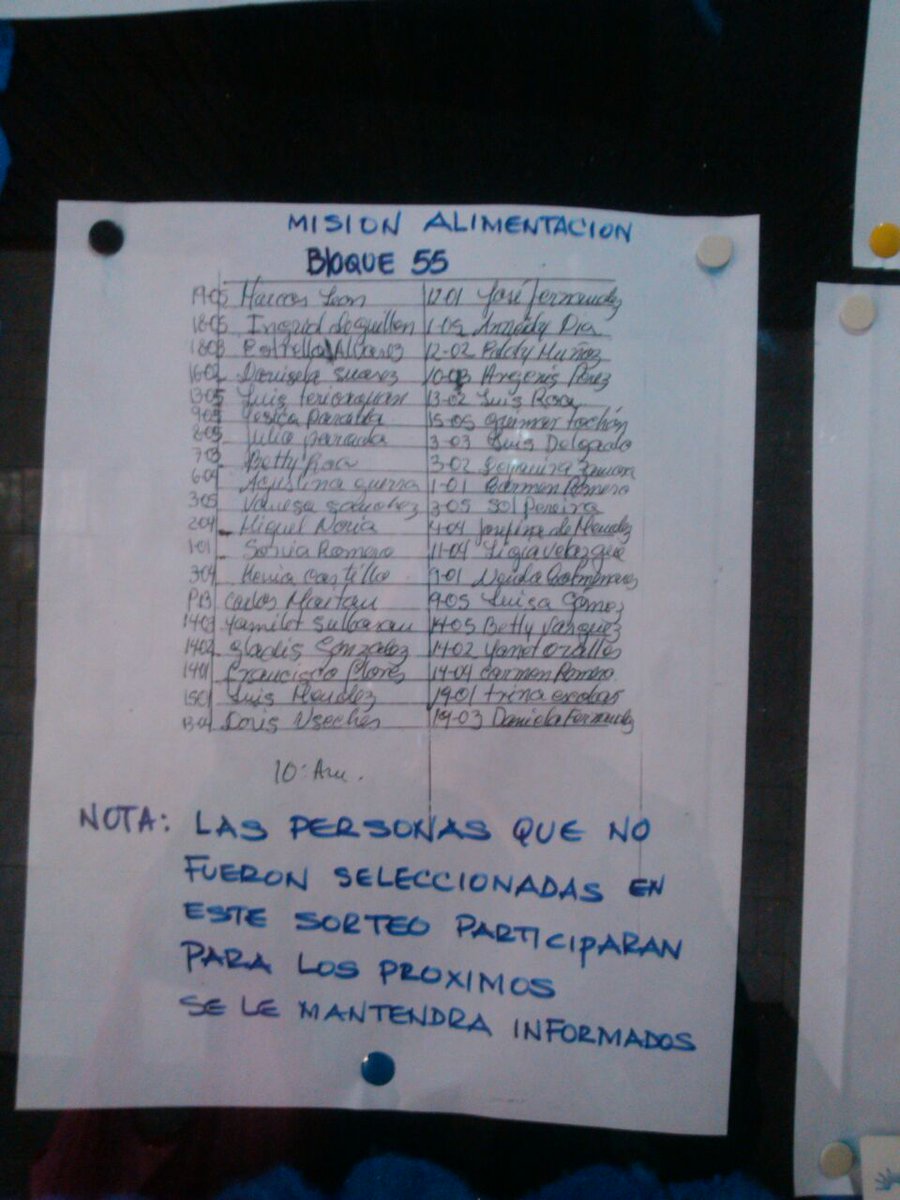 MISION ALIMENTACION
BloQUE 55
19-05 Marcos Leon 12-01 José Fernandez
18-05 Ingrid 1-05
18-03 Estrella Alvarez 12-02 Eddy Muñoz
16-02 Suarez 10-03 Argenis Perez
13-05 Luis 13-02 Luis Rosa
9-05 Yesica 15-05
8-05 Julio 3-03 Luis Delgado
7-03 Betty Roa 3-02
6-04 Agustina guerra 1-01 Carmen Romero
3-05 Vanesa Sanchez 3-05 Sol Pereira
204 Miguel Noria 4-04 Josefina de Mendez
1-01 Sonia Romero 11-04 Ligia
304 Castillo 9-01
PB Carlos 9-05 Luisa Gómez
1403 Yamilet Sulbaran 14-05 Betty Vasquez
1402 Gladis Gonzalez 14-02 Yanet
1401 Francisco Flores 14-04 Carmen Romero
1501 Luis Mendez 19-01 trina escobar
Doris Useches 19-03 Daniela Fernandez
10:Am.
NOTA: LAS PERSONAS QUE NO
FUERON SELECCIONADAS EN
ESTE SORTEO PARTICIPARAN
PARA LOS PROXIMOS
SE LE MANTENDRA INFORMADOS